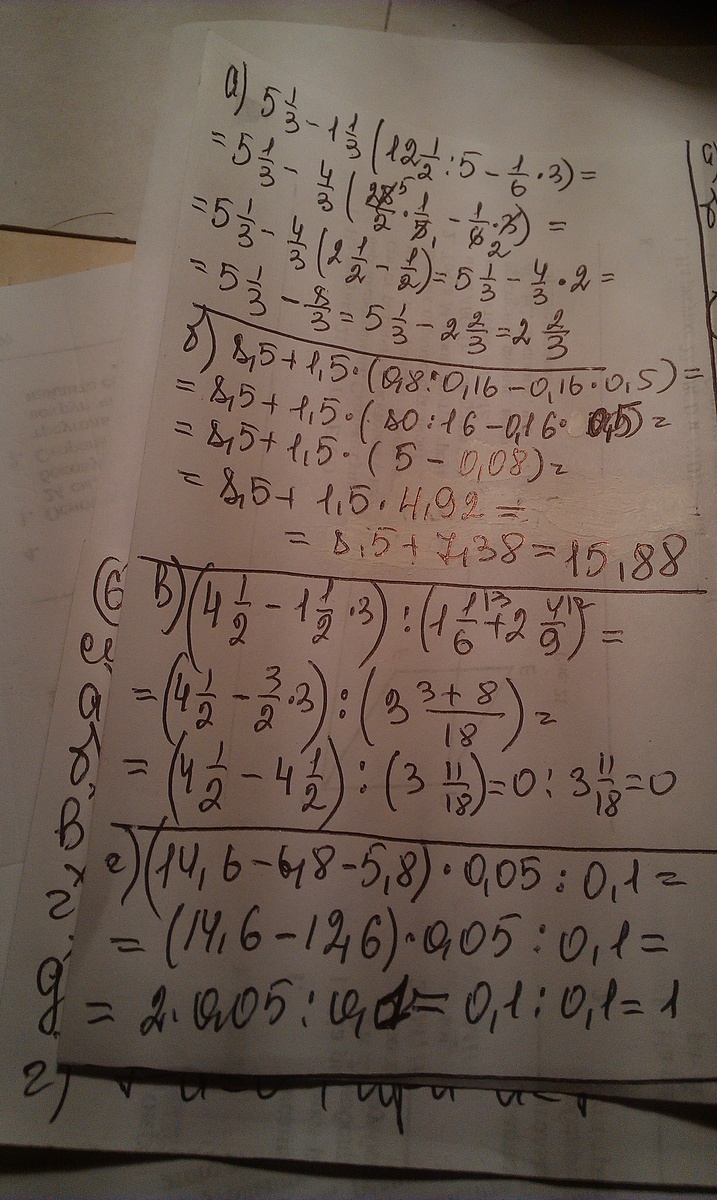 а) 5 1/3 - 1 1/3 (12 1/2 : 5 - 1/6 · 3) =
= 5 1/3 - 4/3 (25/2 · 1/5 - 1/6 · 3) =
= 5 1/3 - 4/3 (2 1/2 - 1/2) = 5 1/3 - 4/3 · 2 =
= 5 1/3 - 8/3 = 5 1/3 - 2 2/3 = 2 2/3
б) 8,5 + 1,5 · (0,8 : 0,16 - 0,16 · 0,5) =
= 8,5 + 1,5 · (80 : 16 - 0,16 · 0,5) =
= 8,5 + 1,5 · (5 - 0,08) =
= 8,5 + 1,5 · 4,92 =
= 8,5 + 7,38 = 15,88
в) (4 1/2 - 1 1/2 · 3) : (1 1/6 + 2 4/9) =
= (4 1/2 - 3/2 · 3) : (3 3+8/18) =
= (4 1/2 - 4 1/2) : (3 11/18) = 0 : 3 11/18 = 0
г) (14,6 - 6,8 - 5,8) · 0,05 : 0,1 =
= (14,6 - 12,6) · 0,05 : 0,1 =
= 2 · 0,05 : 0,1 = 0,1 : 0,1 = 1